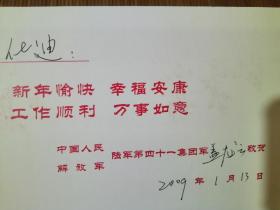 化迪：
新年愉快 幸福安康
工作顺利 万事如意
中国人民解放军 陆军第四十一集团军 孟龙云 敬祝
2009 年 1 月 13 日